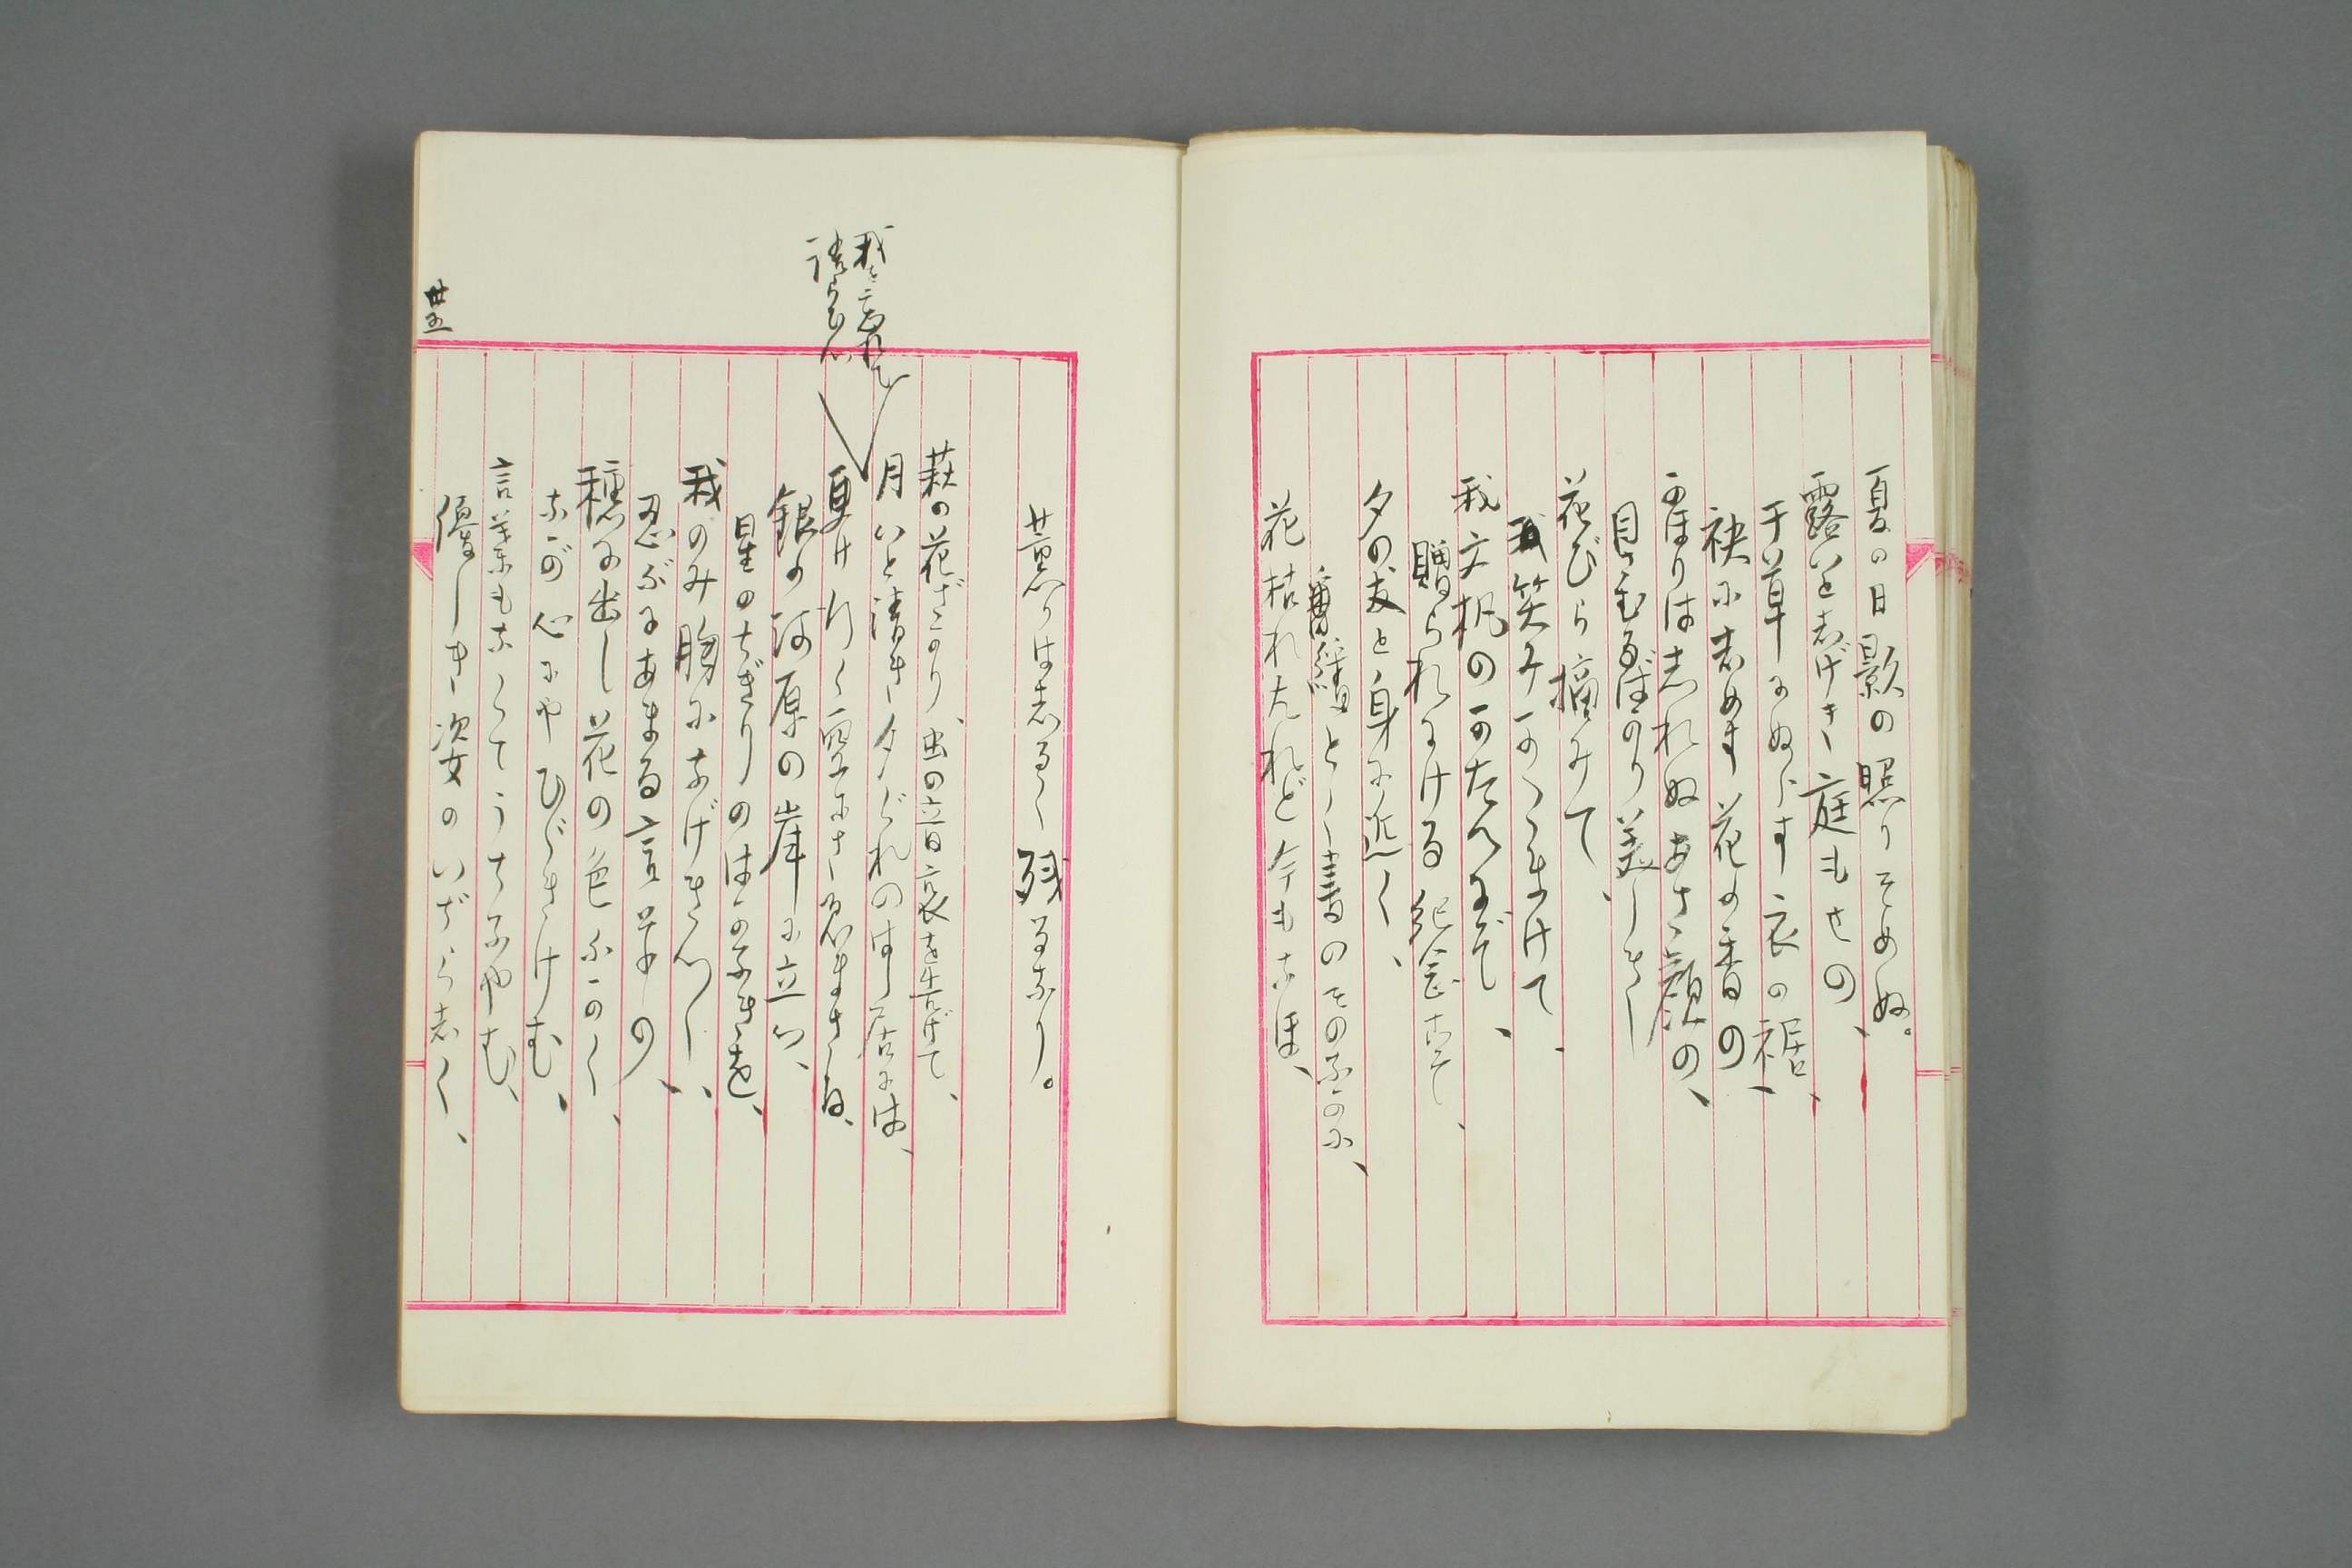 夏の日影の照りそめぬ。
露いとしげき庭もせの、
千草にぬらす衣の裾、
袂にしめる花の香の、
かほりはしれぬあさ顔の、
目もさむるばかり美しき
花びら摘みて、
我笑みかたまけて、
我文机のかたへにぞ、
贈られにける紀念にて、
夕の友と身に近く、
繙とく書のそのなかに、
花枯れたれど今もなほ、
薫りはしるく残るなり。
我を忘れて
語らひし
萩の花ざかり、虫の音哀を告げて、
月いと清き夕ぐれのはし居には、
更け行く空にさへ忍ばるゝ
銀の河原の岸に立つ、
星のちぎりのはかなきを、
我のみ胸になげきつゝ、
忍ぶにあまる言草の、
穂に出し花の色ふかく、
なが心にやひゞきけむ、
言葉もなくてうちなやむ、
優しき姿のいぢらしく、